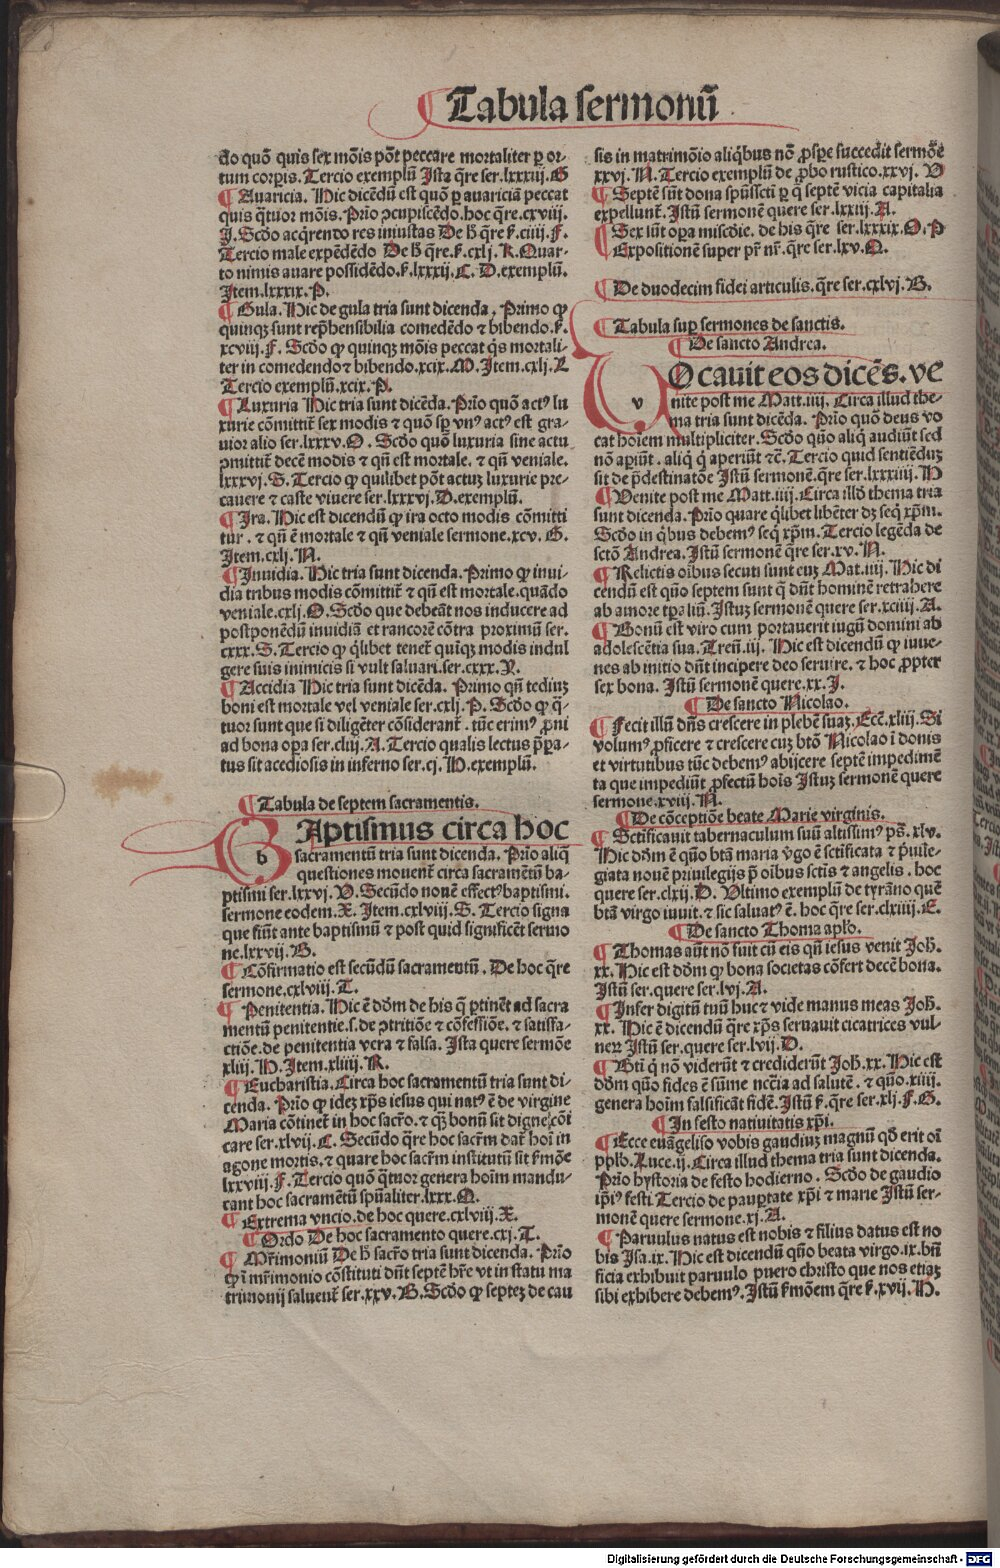 Tabula sermonū
do quō quis sex mōis pōt peccare mortaliter ꝑ or-
tum corꝑis. Tercio exemplū Ista q̄re ser.lxxxiij. G
¶ Auaricia. Hic dicēdū est quō ꝑ auariciā peccat
quis q̄tuor mōis. Prīo ↄcupiscēdo. hoc q̄re.cxviij.
J. Scd̄o acq̄rendo res iniustas De h̄ q̄re ẜ.ciiij. F.
Tercio male expēdēdo De h̄ q̄re.ẜ.cxlj. K. Quar-
to nimis auare possidēdo.ẜ.lxxxij. C. D. exemplū.
Item.lxxxix. P.
¶ Gula. Hic de gula tria sunt dicenda. Primo ꝙ
quinqꝫ sunt rep̄hensibilia comedēdo ⁊ bibendo.ẜ.
xcviij. F. Scd̄o ꝙ quinqꝫ mōis peccat q̄s mortali-
ter in comedendo ⁊ bibendo.xcix. M. Item.cxlj. L
Tercio exemplū.xcix. P.
¶ Luxuria Hic tria sunt dicēda. Prīo quō actꝰ lu
xurie cōmittit̄ sex modis ⁊ quō sꝑ vnꝰ actꝰ est gra-
uior alio ser.lxxxv. O. Scd̄o quō luxuria sine actu
ↄmittit̄ decē modis ⁊ qn̄ est mortale. ⁊ qn̄ veniale.
lxxxvj. S. Tercio ꝙ quilibet pōt actuꝫ luxurie pre-
cauere ⁊ caste viuere ser.lxxxvj. D. exemplū.
¶ Ira. Hic est dicendū ꝙ ira octo modis cōmitti
tur. ⁊ qn̄ ē mortale ⁊ qn̄ veniale sermone.xcv. G.
Item.cxlj. N.
¶ Inuidia. Hic tria sunt dicenda. Primo ꝙ inui-
dia tribus modis cōmittit̄ ⁊ qn̄ est mortale.quādo
veniale.cxlj. O. Scd̄o que debeāt nos inducere ad
postponēdū inuidiā et rancorē cōtra proximū ser.
cxxx. S. Tercio ꝙ q̄libet tenet̄ quīqꝫ modis indul
gere suis inimicis si vult saluari.ser.cxxx. Y.
¶ Accidia Hic tria sunt dicēda. Primo qn̄ tediuꝫ
boni est mortale vel veniale ser.cxlj. P. Scd̄o ꝙ q̄-
tuor sunt que si diligēter cōsiderant̄. tūc erimꝰ ꝓni
ad bona oꝑa ser.cliij. A. Tercio qualis lectus p̄ꝑa-
tus sit acediosis in inferno ser.cj. H. exemplū.
¶ Tabula de septem sacramentis.
b Aptismus circa hoc
sacramentū tria sunt dicenda. Prīo aliq̄
questiones mouent̄ circa sacramētū ba-
ptismi ser.lxxvj. V. Secūdo nouē effectꝰ baptismi.
sermone eodem. X. Item.cxlviij. S. Tercio signa
que fiūt ante baptismū ⁊ post quid significēt sermo
ne.lxxvij. B.
¶ Cōfirmatio est secūdū sacramentū. De hoc q̄re
sermone.cxlviij. T.
¶ Penitentia. Hic ē dd̄m de his q̄ ꝑtinēt ad sacra
mentū penitentie.s.de ↄtritiōe ⁊ cōfessiōe. ⁊ satisfa-
ctiōe.de penitentia vera ⁊ falsa. Ista quere sermōe
xliij. H. Item.xliiij. R.
¶ Eucharistia. Circa hoc sacramentū tria sunt di-
cenda. Prīo ꝙ ideꝫ xp̄s iesus qui natꝰ ē de virgine
Maria cōtinet̄ in hoc sacr̄o. ⁊ qꝫ bonū sit digne cōi
care ser.xlvij. C. Secūdo q̄re hoc sacr̄m dat̄ hoī in
agone mortis. ⁊ quare hoc sacr̄m institutū sit ẜmōe
lxxviij. F. Tercio quō q̄tuor genera hoīm mandu-
cant hoc sacramētū spūaliter.lxxx. Q.
¶ Extrema vncio.de hoc quere.cxlviij. X.
¶ Ordo De hoc sacramento quere.cxj. T.
¶ Mr̄imoniū De h̄ sacr̄o tria sunt dicenda. Prīo
ꝙ ī mr̄imonio cōstituti dn̄t septē hr̄e vt in statu ma
trimonij saluent̄ ser.xxv. B. Scd̄o ꝙ septeꝫ de cau
sis in matrimōio aliq̄bus nō ꝓsꝑe succedit sermōe
xxvj. N. Tercio exemplū de ꝓbo rustico.xxvj. V
¶ Septē sūt dona spūssctī ꝑ q̄ septē vicia capitalia
expellunt̄. Istū sermonē quere ser.lxxij. A.
¶ Sex sūt oꝑa mīscdie. de his q̄re ser.lxxxix. O. P
¶ Expositionē super pr̄ nr̄.q̄re ser.lxv. Q.
¶ De duodecim fidei articulis.q̄re ser.cxlvj. B.
¶ Tabula suꝑ sermones de sanctis.
¶ De sancto Andrea.
v Ocauit eos dicēs. ve
nite post me Matt.iiij. Circa illud the-
ma tria sunt dicēda. Prīo quō deus vo
cat hoīem multipliciter. Scd̄o qūo aliq̄ audiūt sed
nō aꝑiūt. aliq̄ q̄ aperiūt ⁊c̄. Tercio quid sentiēduꝫ
sit de p̄destinatōe Istū sermonē.q̄re ser.lxxxiiij. H
¶ Venite post me Matt.iiij. Circa illd̄ thema tria
sunt dicenda. Prīo quare q̄libet libēter dꝫ seq̄ xp̄m.
Scd̄o in q̄bus debemꝰ seq̄ xp̄m. Tercio legēda de
sctō Andrea. Istū sermonē q̄re ser.xv. N.
¶ Relictis oībus secuti sunt euꝫ Mat.iiij. Hic di
cendū est quō septem sunt q̄ dn̄t hominē retrahere
ab amore tp̄aliū. Istuꝫ sermonē quere ser.xciiij. A.
¶ Bonū est viro cum portauerit iugū domini ab
adolescētia sua. Tren̄.iij. Hic est dicendū ꝙ iuue-
nes ab initio dn̄t incipere deo seruire. ⁊ hoc ꝓpter
sex bona. Istū sermonē quere.xx. J.
¶ De sancto Nicolao.
¶ Fecit illū dn̄s crescere in plebē suaꝫ. Ecc̄.xliij. Si
volumꝰ ꝓficere ⁊ crescere cuꝫ btō Nicolao ī donis
et virtutibus tūc debemꝰ abijcere septē impedimē
ta que impediūt ꝓfectū hoīs Istuꝫ sermonē quere
sermone.xviij. N.
¶ De cōceptiōe beate Marie virginis.
¶ Sctīficauit tabernaculum suū altissimꝰ ps̄. xlv.
Hic dd̄m ē qūo btā maria v̄go ē sctīficata ⁊ p̄uile-
giata nouē priuilegijs p̄ oībus sctīs ⁊ angelis. hoc
quere ser.clxij. D. Vltimo exemplū de tyrāno quē
btā virgo iuuit. ⁊ sic saluatꝰ ē. hoc q̄re ser.clxiiij. E.
¶ De sancto Thoma apl̄o.
¶ Thomas aūt nō fuit cū eis qn̄ iesus venit Joh̄.
xx. Hic est dd̄m ꝙ bona societas cōfert decē bona.
Istū ser.quere ser.lvj. A.
¶ Infer digitū tuū huc ⁊ vide manus meas Joh̄.
xx. Hic ē dicendū q̄re xp̄s seruauit cicatrices vul-
neꝝ Istū ser.quere ser.lvij. D.
¶ Bti q̄ nō viderūt ⁊ crediderūt Joh̄.xx. Hic est
dd̄m quō fides ē sūme ncc̄ia ad salutē. ⁊ qūo.xiiij.
genera hoīm falsificāt fidē. Istū ẜ.q̄re ser.xlj. F. G.
¶ In festo natiuitatis xp̄i.
¶ Ecce euāgeliso vobis gaudiuꝫ magnū qd̄ erit oī
ppl̄o. Luce.ij. Circa illud thema tria sunt dicenda.
Prīo hystoria de festo hodierno. Scd̄o de gaudio
ip̄iꝰ festi Tercio de pauꝑtate xp̄i ⁊ marie Istū ser-
monē quere sermone.xj. A.
¶ Paruulus natus est nobis ⁊ filius datus est no
bis Isa.ix. Hic est dicendū qūo beata virgo.ix.bn̄
ficia exhibuit paruulo puero christo que nos etiaꝫ
sibi exhibere debemꝰ. Istū ẜmōem q̄re ẜ.xvij. H.
Digitalisierung gefördert durch die Deutsche Forschungsgemeinschaft - DFG